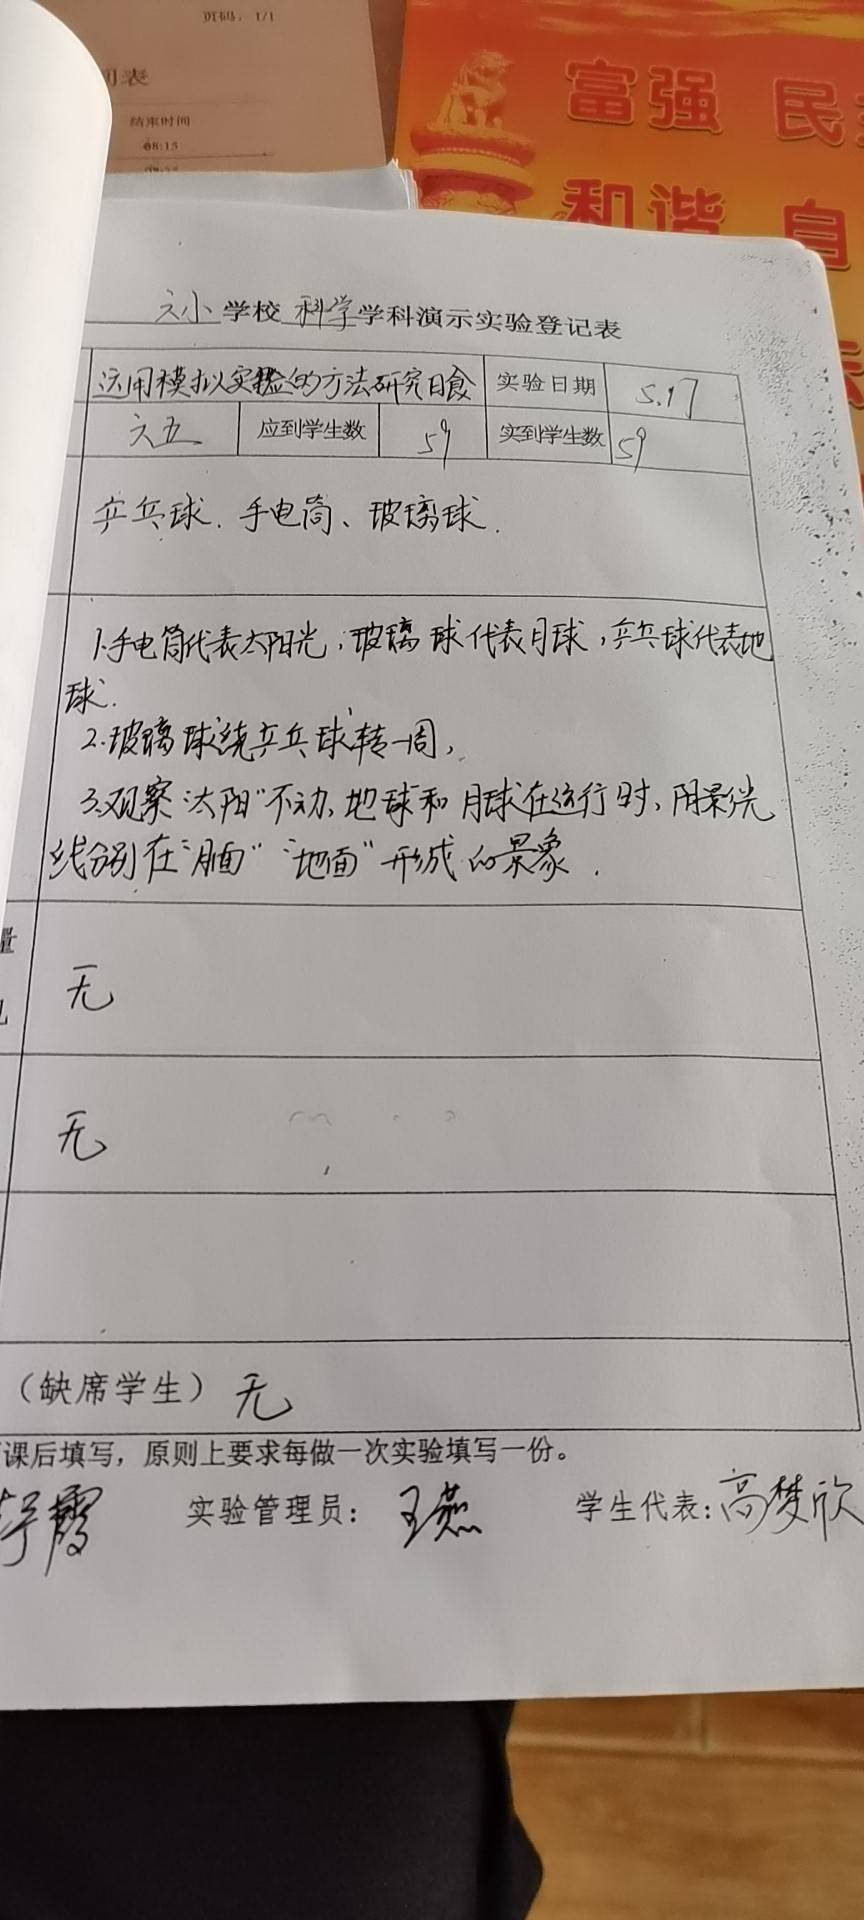 页码：1/1
间表
结束时间
08:15
富强 民
和谐 自
六小学校 科学学科演示实验登记表
运用模拟实验的方法研究日食 实验日期 5.17
六五 应到学生数 59 实到学生数 59
乒乓球、手电筒、玻璃球.
1.手电筒代表太阳光，玻璃球代表月球，乒乓球代表地
球.
2.玻璃球绕乒乓球转一周，
3.观察"太阳"不动，地球和月球在运行时，阴影光
线分别在"月面""地面"形成的景象.
量
无
无
（缺席学生）无
课后填写，原则上要求每做一次实验填写一份。
霞 实验管理员：王燕 学生代表：高梦欣